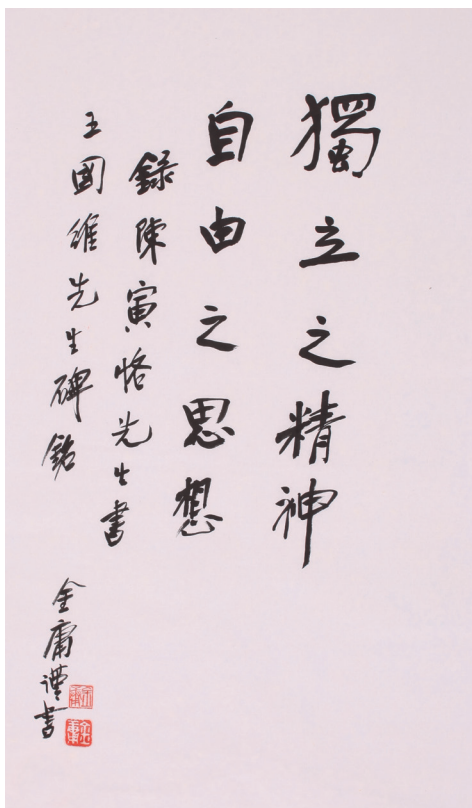 獨立之精神
自由之思想
録陳寅恪先生書
王國維先生碑銘
金庸謹書
金庸
金庸